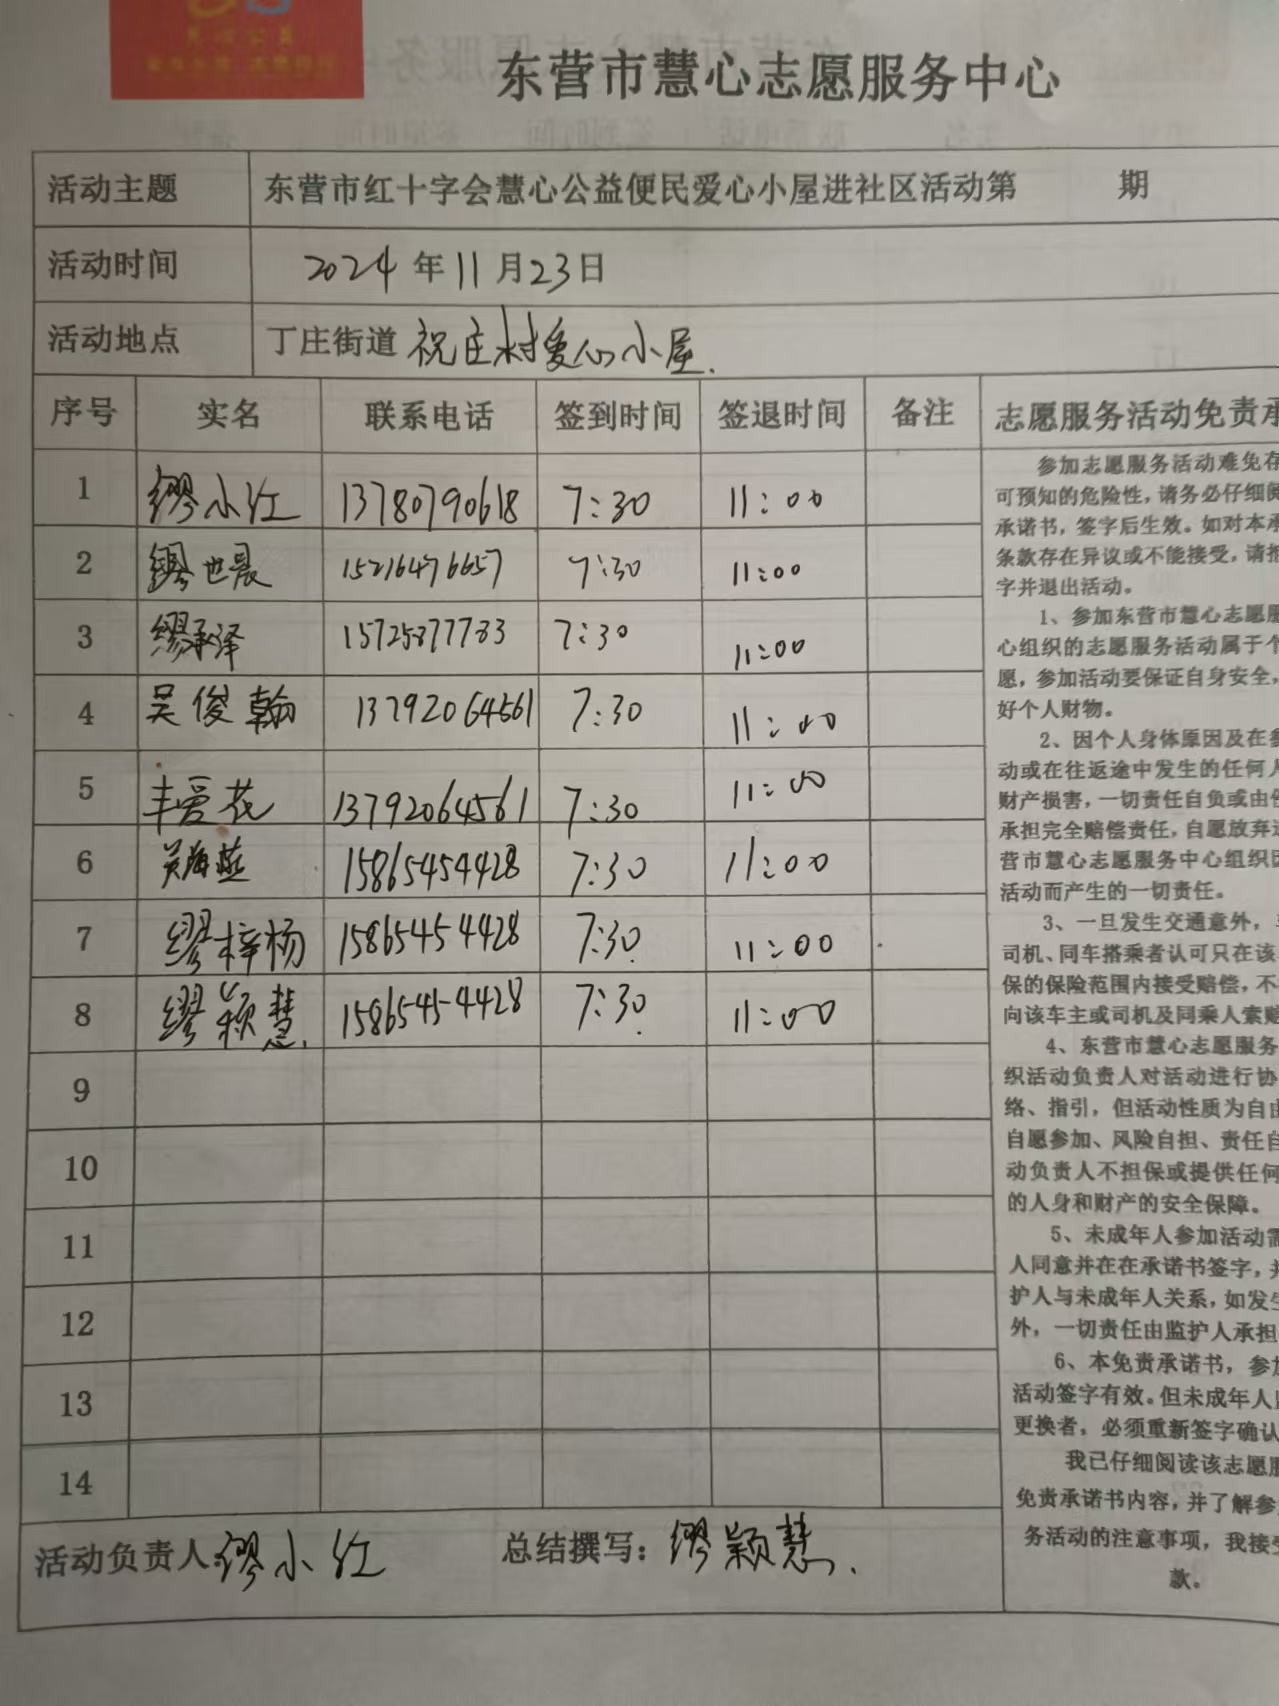 东营市慧心志愿服务中心
活动主题 东营市红十字会慧心公益便民爱心小屋进社区活动第 期
活动时间 2024年11月23日
活动地点 丁庄街道 祝庄村爱心小屋.
序号 实名 联系电话 签到时间 签退时间 备注 志愿服务活动免责承
1 缪小红 13780790618 7:30 11:00
2 缪世晨 15216476657 7:30 11:00
3 缪承泽 15725877783 7:30 11:00
4 吴俊翰 13792064561 7:30 11:00
5 丰爱花 13792064561 7:30 11:00
6 吴海燕 15865454428 7:30 11:00
7 缪梓杨 15865454428 7:30 11:00
8 缪颖慧. 15865454428 7:30 11:00
9
10
11
12
13
14
活动负责人:缪小红 总结撰写:缪颖慧.
参加志愿服务活动难免存
可预知的危险性,请务必仔细阅
承诺书,签字后生效。如对本承
条款存在异议或不能接受,请拒
字并退出活动。
1、参加东营市慧心志愿服
心组织的志愿服务活动属于个
愿,参加活动要保证自身安全,
好个人财物。
2、因个人身体原因及在参
动或在往返途中发生的任何人
财产损害,一切责任自负或由
承担完全赔偿责任,自愿放弃
营市慧心志愿服务中心组织
活动而产生的一切责任。
3、一旦发生交通意外,
司机、同车搭乘者认可只在该
保的保险范围内接受赔偿,不
向该车主或司机及同乘人索赔
4、东营市慧心志愿服务
织活动负责人对活动进行协
络、指引,但活动性质为自由
自愿参加、风险自担、责任自
动负责人不担保或提供任何
的人身和财产的安全保障。
5、未成年人参加活动需
人同意并在在承诺书签字,并
护人与未成年人关系,如发生
外,一切责任由监护人承担
6、本免责承诺书,参加
活动签字有效。但未成年人
更换者,必须重新签字确认
我已仔细阅读该志愿服
免责承诺书内容,并了解参
务活动的注意事项,我接受
款。